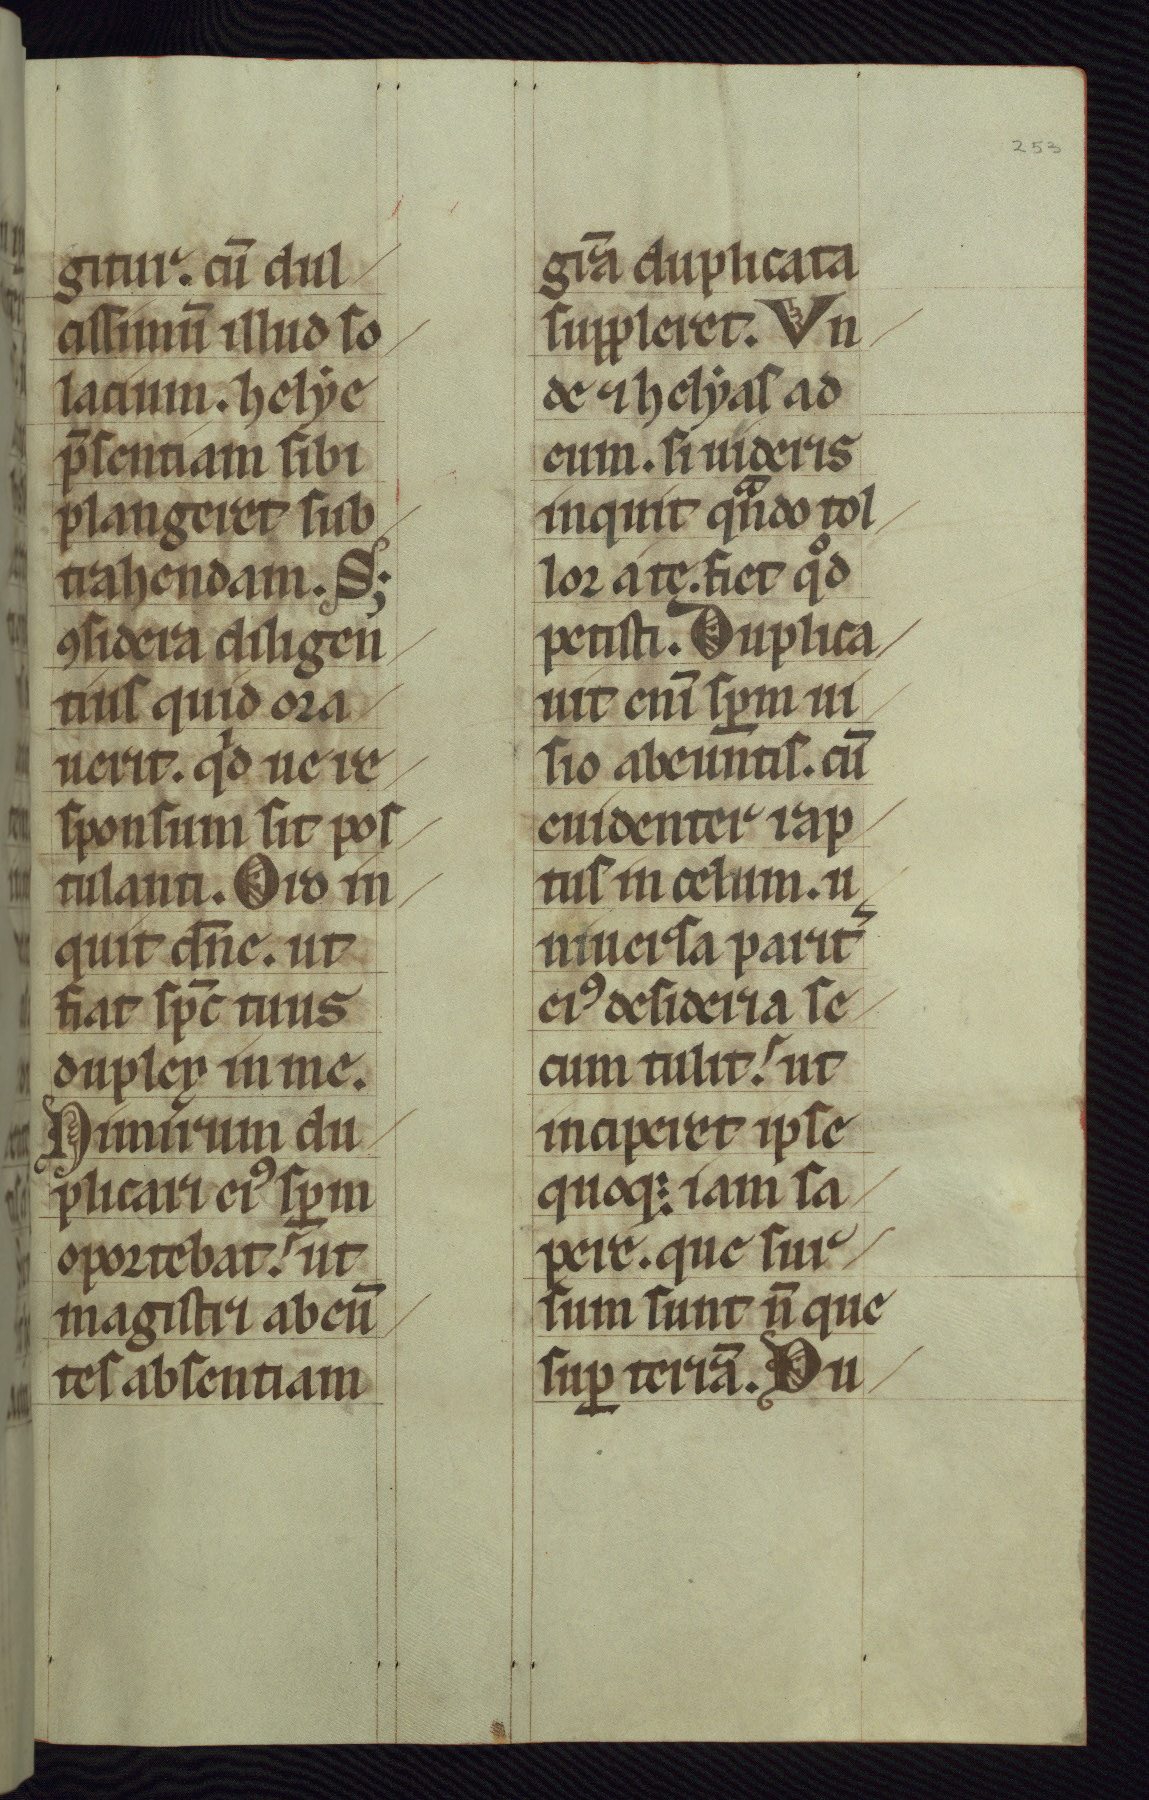 253
gitur. cū dul
cissimū illud so
lacium. helẏe
p̄sentiam sibi
plangeret sub
trahendam. S;
ꝯsidera diligen
tius quid ora
uerit. qd ue re
sponsum sit pos
tulanti. Oro in
quit dn̄e. ut
fiat spc̄ tuus
duplex in me.
Nimirum du
plicari eiꝰ spm̄
oportebat. ut
magistri abeū
tes absentiam
gr̄a duplicata
suppleret. Vn
de ⁊ helẏas ad
eum. si uideris
inquit qn̄do tol
lor a te. fiet qd
petisti. Duplica
uit eni̅ spm̄ ui
sio abeuntis. cū
euidenter rap
tus in celum. u
niuersa parit
eiꝰ desideria se
cum tulit. ut
inciperet ipse
quoq; iam sa
pere. que sur
sum sunt n̄ que
sup terrā. Du